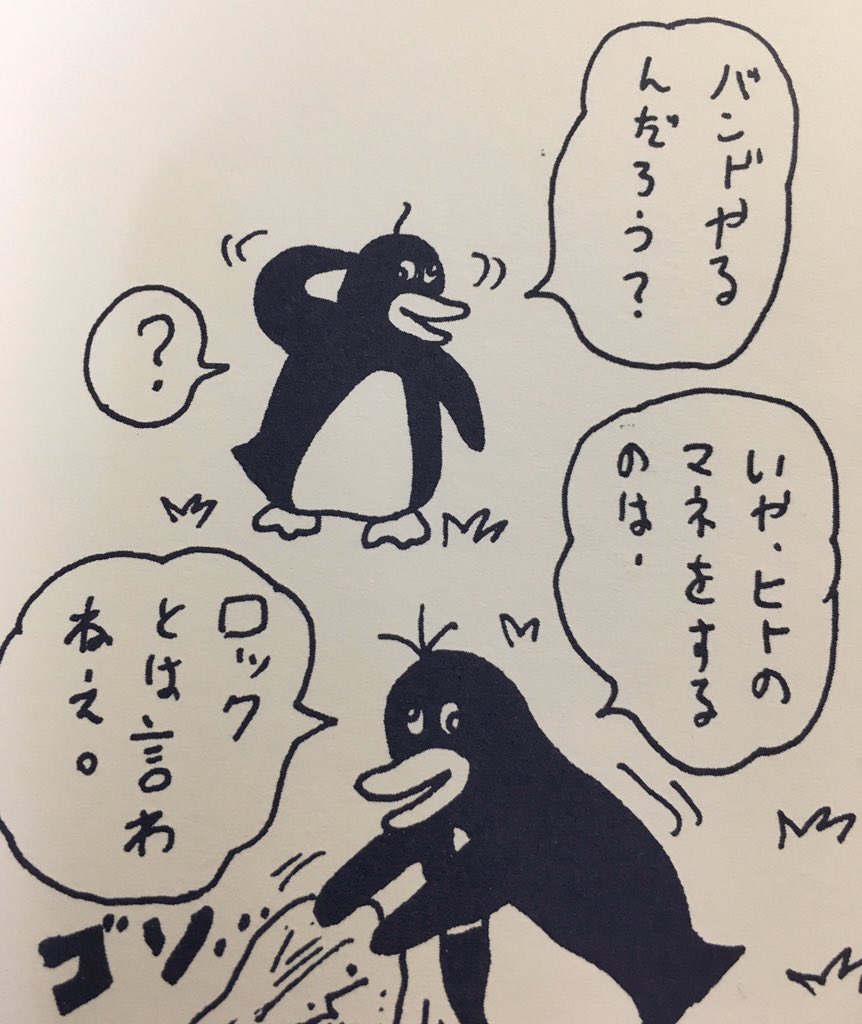 バンドやる
んだろう?
?
いや、ヒトの
マネをする
のは、
ロック
とは言わ
ねえ。
ゴソ…